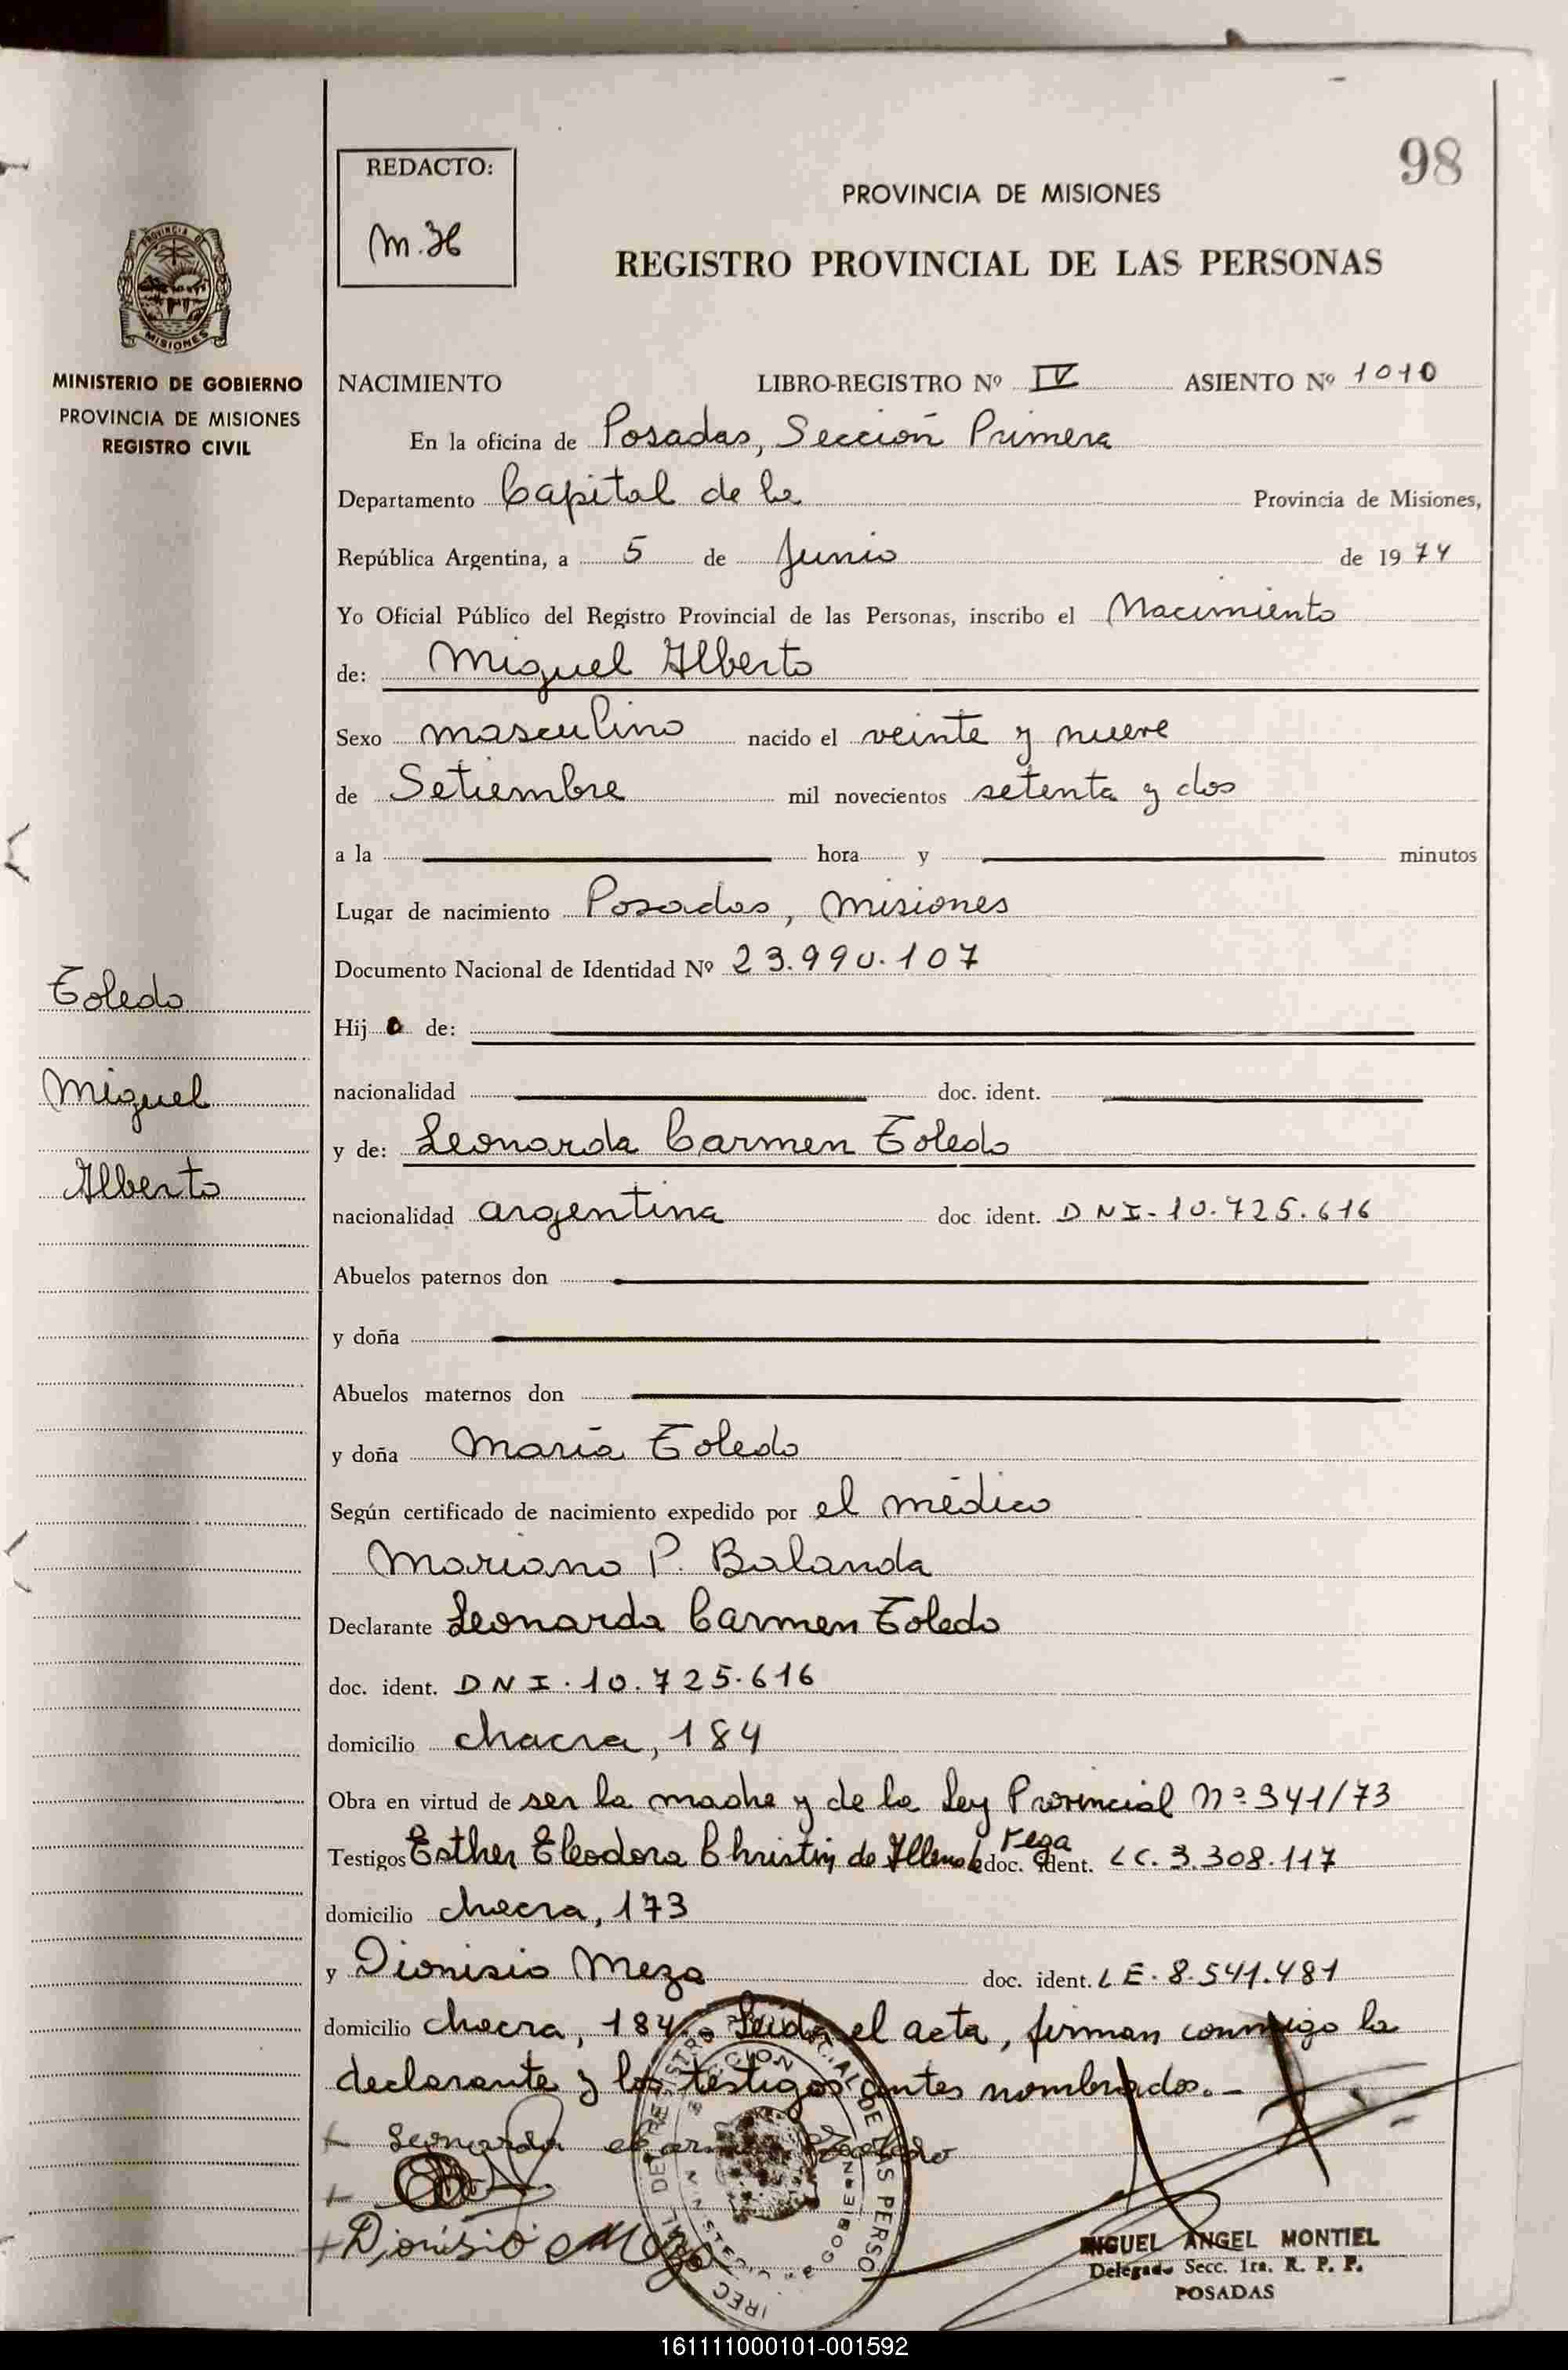 98
REDACTO:
M.H
PROVINCIA DE MISIONES
REGISTRO PROVINCIAL DE LAS PERSONAS
MISIONES
MINISTERIO DE GOBIERNO
PROVINCIA DE MISIONES
REGISTRO CIVIL
NACIMIENTO LIBRO-REGISTRO Nº IV ASIENTO Nº 1010
En la oficina de Posadas, Sección Primera
Departamento Capital de la Provincia de Misiones,
República Argentina, a 5 de Junio de 1974
Yo Oficial Público del Registro Provincial de las Personas, inscribo el Nacimiento
de: Miguel Alberto
Sexo masculino nacido el veinte y nueve
de Setiembre mil novecientos setenta y dos
a la hora y minutos
Lugar de nacimiento Posadas, Misiones
Documento Nacional de Identidad Nº 23.990.107
Toledo
Miguel
Alberto
Hijo de:
nacionalidad doc. ident.
y de: Leonarda Carmen Toledo
nacionalidad argentina doc ident. DNI-10.725.616
Abuelos paternos don
y doña
Abuelos maternos don
y doña María Toledo
Según certificado de nacimiento expedido por el médico
Mariano P. Balanda
Declarante Leonarda Carmen Toledo
doc. ident. DNI.10.725.616
domicilio chacra, 184
Obra en virtud de ser la madre y de la Ley Provincial Nº 341/73
Testigos Esther Eleodora Christin de doc. ident. LC. 3.308.117
domicilio chacra, 173
y Dionisio Meza doc. ident. LE. 8.541.481
domicilio chacra, 184. Leída el acta, firman conmigo la
declarante y los testigos antes nombrados.-
Leonarda Carmen Toledo
Dionisio Meza
MIGUEL ANGEL MONTIEL
Delegado Secc. 1ra. R. P. P.
POSADAS
161111000101-001592